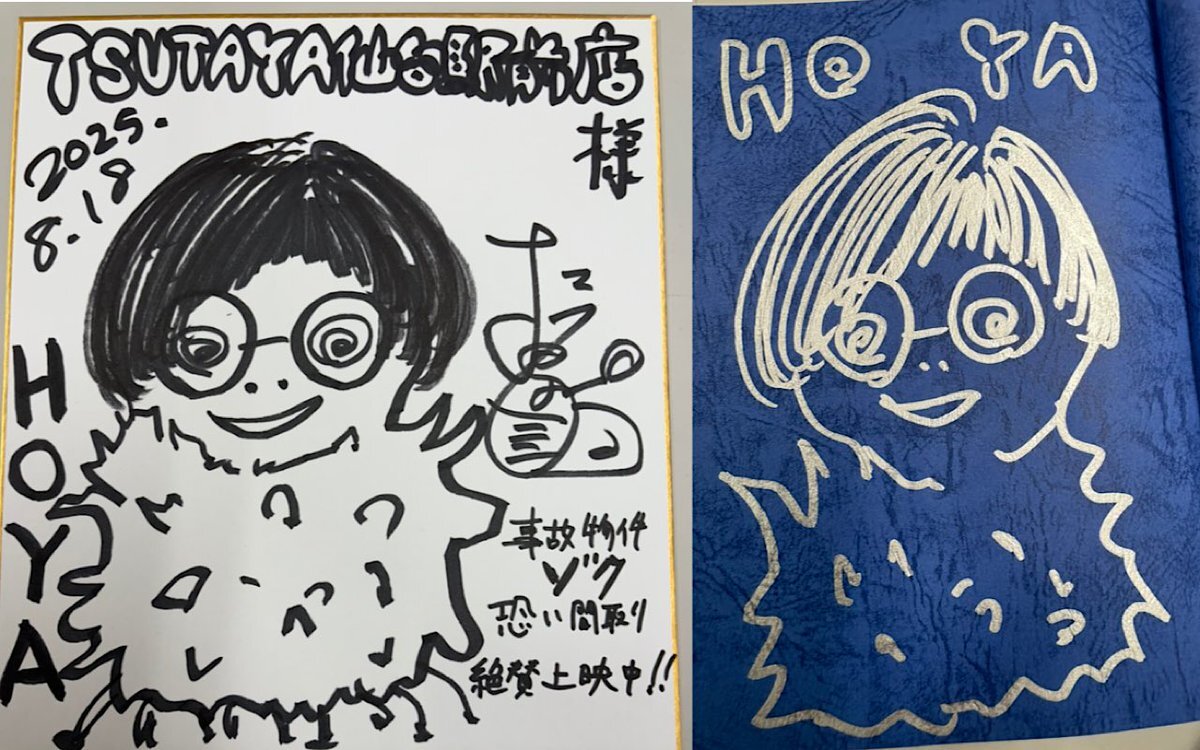 TSUTAYA仙台駅前店
様
2025.
8.18
HOYA
事故物件
ゾク
恐い間取り
絶賛上映中!!
HO YA